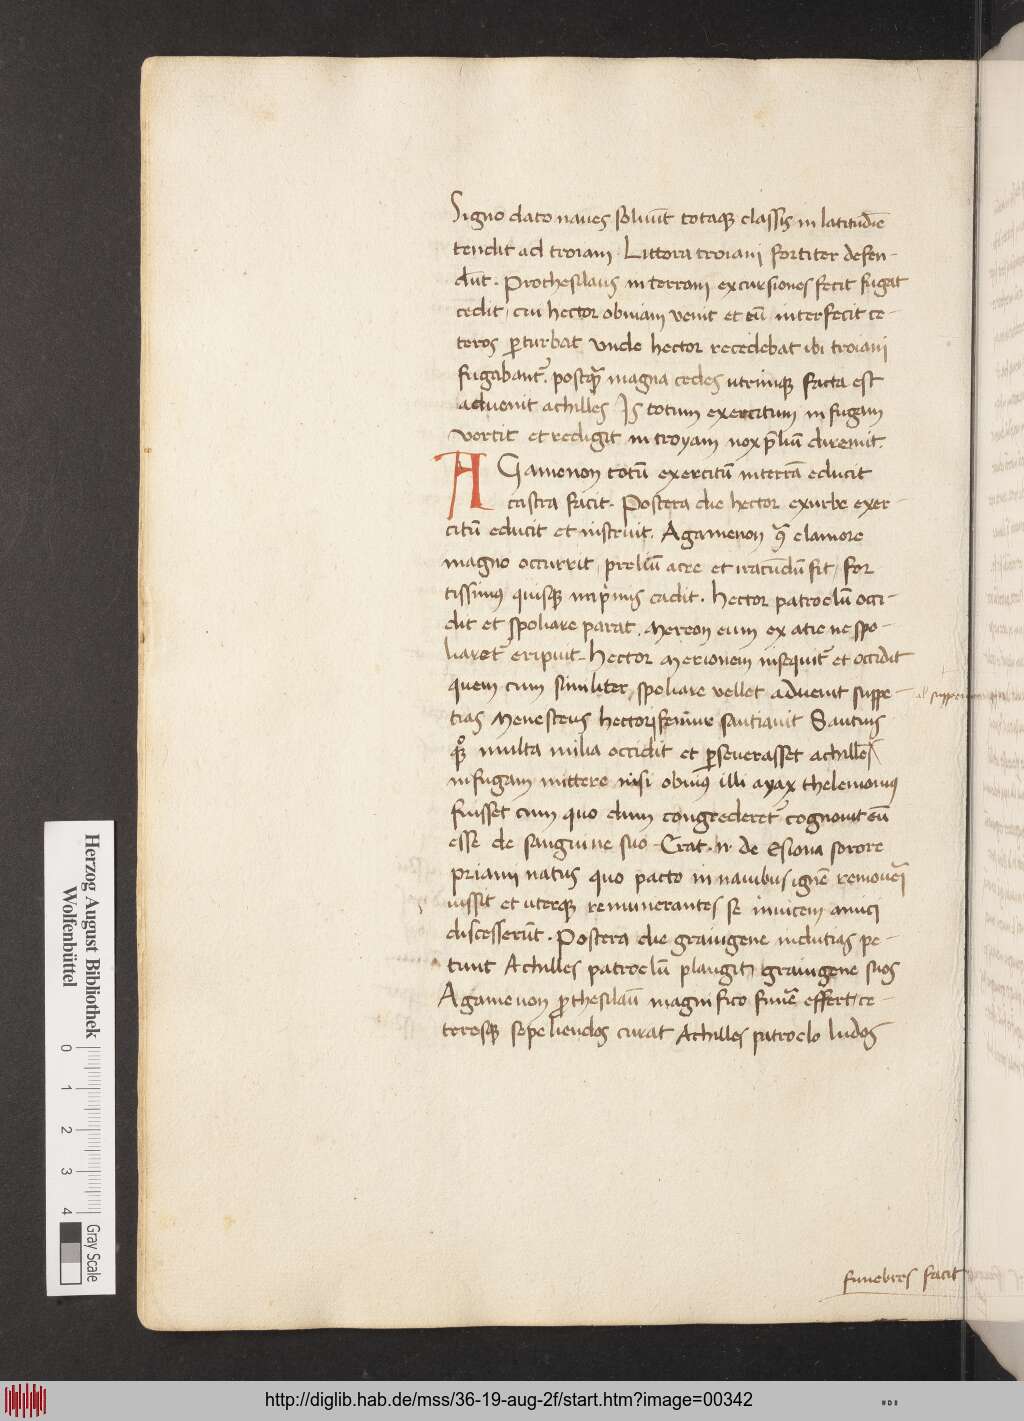 Signo dato naues soluūt totaqꝫ classis in latitudīe
tendit ad troiam. Littora troiani fortiter defen-
dūt. Prothesilaus in terram excursiones fecit fugat
cedit, cui hector obuiam venit et eū interfecit ce-
teros ꝑturbat vnde hector recedebat ibi troiani
fugabant᷒. postqᷓ magna cedes utrimqꝫ facta est
aduenit achilles Is totum exercitum in fugam
vertit et redigit in troyam nox p̄liū diremit.
AGamenon totū exercitū in terrā educit
castra facit. Postera die hector ex urbe exer-
citū educit et instruit. Agamenon ꝯᷓ clamore
magno occurrit, preliū acre et iracūdū fit, for
tissimus quisqꝫ inprimis cadit. hector patroclū occi-
dit et spoliare parat. Mereon eum ex acie ne spo-
liaret᷒ eripuit. hector Merionem insequit᷒ et occidit
quem cum similiter spoliare vellet aduenit suppe-
tias Menesteus hectori femur sautiauit Sautius
qꝫ multa milia occidit et ꝑseuerasset achilles
in fugam mittere nisi obuius illi ayax thelemonius
fuisset cum quo dum congrederet᷒ cognouit eū
esse de sanguine suo. Erat .n. de Esiona sorore
priami natus quo pacto in nauibus ignē remoueri
iussit et uterqꝫ remunerantes se inuicem amici
discesserūt. Postera die graiugene indutias pe-
tunt Achilles patroclū plangit, graiugene suos
Agamenon ꝓthesilaū magnifico funere effert, ce-
terosqꝫ sepeliendos curat Achilles patroclo ludos
funebres facit
Herzog August Bibliothek
Wolfenbüttel
0 1 2 3 4
Gray Scale
http://diglib.hab.de/mss/36-19-aug-2f/start.htm?image=00342